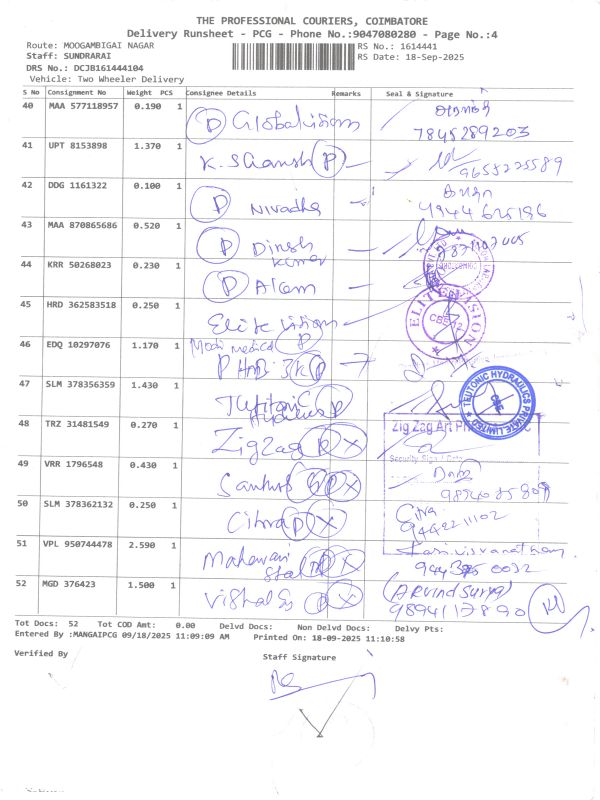 THE PROFESSIONAL COURIERS, COIMBATORE
Delivery Runsheet - PCG - Phone No.:9047080280 - Page No.:4
Route: MOOGAMBIGAI NAGAR RS No.: 1614441
Staff: SUNDRARAI RS Date: 18-Sep-2025
DRS No.: DCJB161444104
Vehicle: Two Wheeler Delivery
S No Consignment No Weight PCS Consignee Details Remarks Seal & Signature
40 MAA 577118957 0.190 1 P Globalvisions
7845289203
41 UPT 8153898 1.370 1 K. S Ganesh P
9655225589
42 DDG 1161322 0.100 1 P Nivadha
4944625186
43 MAA 870865686 0.520 1 P Dinesh
Kumar
44 KRR 50268023 0.230 1 P Akam
45 HRD 362583518 0.250 1 Elite visions P
ELITE VISION
CBE-12
46 EDQ 10297076 1.170 1 Modi medical
P
47 SLM 378356359 1.430 1 P
TEUTONIC HYDRAULICS PRIVATE LIMITED
CBE
48 TRZ 31481549 0.270 1 Zigzag P X
Zig Zag Art
Security Sign / Date
49 VRR 1796548 0.430 1 Santhosh P X
50 SLM 378362132 0.250 1 Cithra P X Citra
9442211102
51 VPL 950744478 2.590 1 P X
52 MGD 376423 1.500 1 Vishal P X (Arvind Surya)
9894117890
Tot Docs: 52 Tot COD Amt: 0.00 Delvd Docs: Non Delvd Docs: Delvy Pts:
Entered By :MANGAIPCG 09/18/2025 11:09:09 AM Printed On: 18-09-2025 11:10:58
Verified By Staff Signature